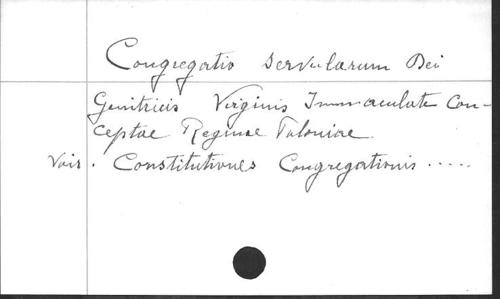 Congregatio Servularum Dei
Genitricis Virginis Immaculate Con-
ceptae Reginae Poloniae
Voir. Constitutiones Congregationis .....